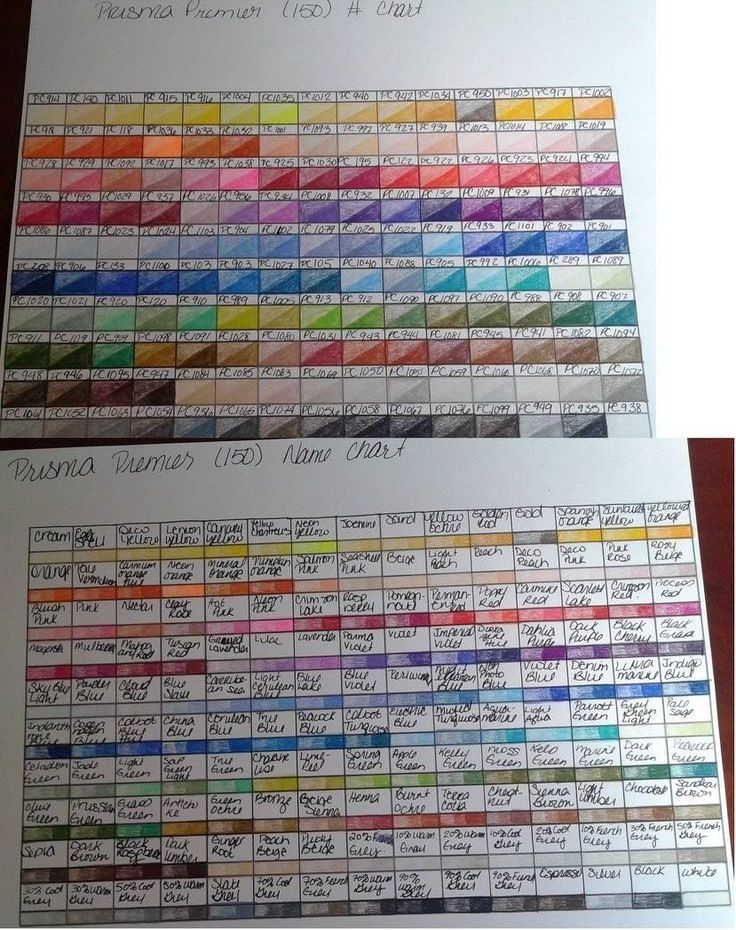 Prisma Premier (150) # Chart
PC914 PC140 PC1011 PC915 PC916 PC1004 PC1035 PC1012 PC940 PC942 PC1034 PC950 PC1003 PC917 PC1002
PC918 PC921 PC118 PC1036 PC1033 PC1032 PC1001 PC1093 PC997 PC927 PC939 PC1013 PC1014 PC1018 PC1019
PC928 PC929 PC1092 PC1017 PC993 PC1038 PC925 PC1030 PC195 PC122 PC922 PC926 PC923 PC924 PC994
PC930 PC995 PC1029 PC937 PC1026 PC956 PC934 PC1008 PC932 PC1007 PC132 PC1009 PC931 PC1078 PC996
PC1086 PC1087 PC1023 PC1024 PC1103 PC904 PC1102 PC1079 PC1025 PC1022 PC919 PC933 PC1101 PC902 PC901
PC208 PC906 PC133 PC1100 PC103 PC903 PC1027 PC105 PC1040 PC1088 PC905 PC992 PC1006 PC289 PC1089
PC1020 PC1021 PC920 PC120 PC910 PC989 PC1005 PC913 PC912 PC1096 PC1097 PC1090 PC988 PC908 PC907
PC911 PC109 PC909 PC1098 PC1091 PC1028 PC1080 PC1031 PC943 PC944 PC1081 PC945 PC941 PC1082 PC1094
PC948 PC946 PC1095 PC947 PC1084 PC1085 PC1083 PC1069 PC1050 PC1051 PC1059 PC1060 PC1068 PC1070 PC1072
PC1061 PC1052 PC1063 PC1054 PC936 PC1065 PC1074 PC1056 PC1058 PC1067 PC1076 PC1099 PC949 PC935 PC938
Prisma Premier (150) Name Chart
Cream Egg Shell Deco Yellow Lemon Yellow Canary Yellow Yellow Chartreuse Neon Yellow Jasmine Sand Yellow Ochre Golden Rod Gold Spanish Orange Sunburst Yellow Yellowed Orange
Orange Pale Vermilion Cadmium Orange Hue Neon Orange Mineral Orange Pumpkin Orange Salmon Pink Seashell Pink Beige Light Peach Peach Deco Peach Deco Pink Pink Rose Rosy Beige
Blush Pink Pink Nectar Clay Rose Hot Pink Neon Pink Crimson Lake Raspberry Pomegranate Permanent Red Poppy Red Carmine Red Scarlet Lake Crimson Red Process Red
Magenta Mulberry Mahogany Red Tuscan Red Greyed Lavender Lilac Lavender Parma Violet Violet Imperial Violet Dioxazine Hue Dahlia Purple Dark Purple Black Cherry Black Grape
Sky Blue Light Powder Blue Cloud Blue Blue Slate Caribbean Sea Light Cerulean Blue Blue Lake Blue Violet Periwinkle Blue Non Photo Blue Violet Blue Denim Blue Ultramarine Indigo Blue
Indanthrone Blue Copenhagen Blue Cobalt Blue Hue China Blue Cerulean Blue True Blue Peacock Blue Cobalt Turquoise Electric Blue Muted Turquoise Aquamarine Light Aqua Parrott Green Grey Green Light Pale Sage
Celadon Green Jade Green Light Green Sap Green Light True Green Chartreuse Lime Peel Spring Green Apple Green Kelly Green Moss Green Kelp Green Marine Green Dark Green Peacock Green
Olive Green Prussian Green Grass Green Artichoke Green Ochre Bronze Beige Sienna Henna Burnt Ochre Terra Cotta Chestnut Sienna Brown Light Umber Chocolate Sandbar Brown
Sepia Dark Brown Black Raspberry Dark Umber Ginger Root Peach Beige Beige 20% French Grey 10% Warm Gray 20% Warm Grey 10% Cool Grey 20% Cool Grey 10% French Grey 30% French Grey 50% French Grey
30% Cool Grey 30% Warm Grey 50% Cool Grey 50% Warm Grey Slate Grey 70% Cool Grey 70% French Grey 70% Warm Grey 90% Warm Grey 90% Cool Grey 90% French Grey Espresso Silver Black White